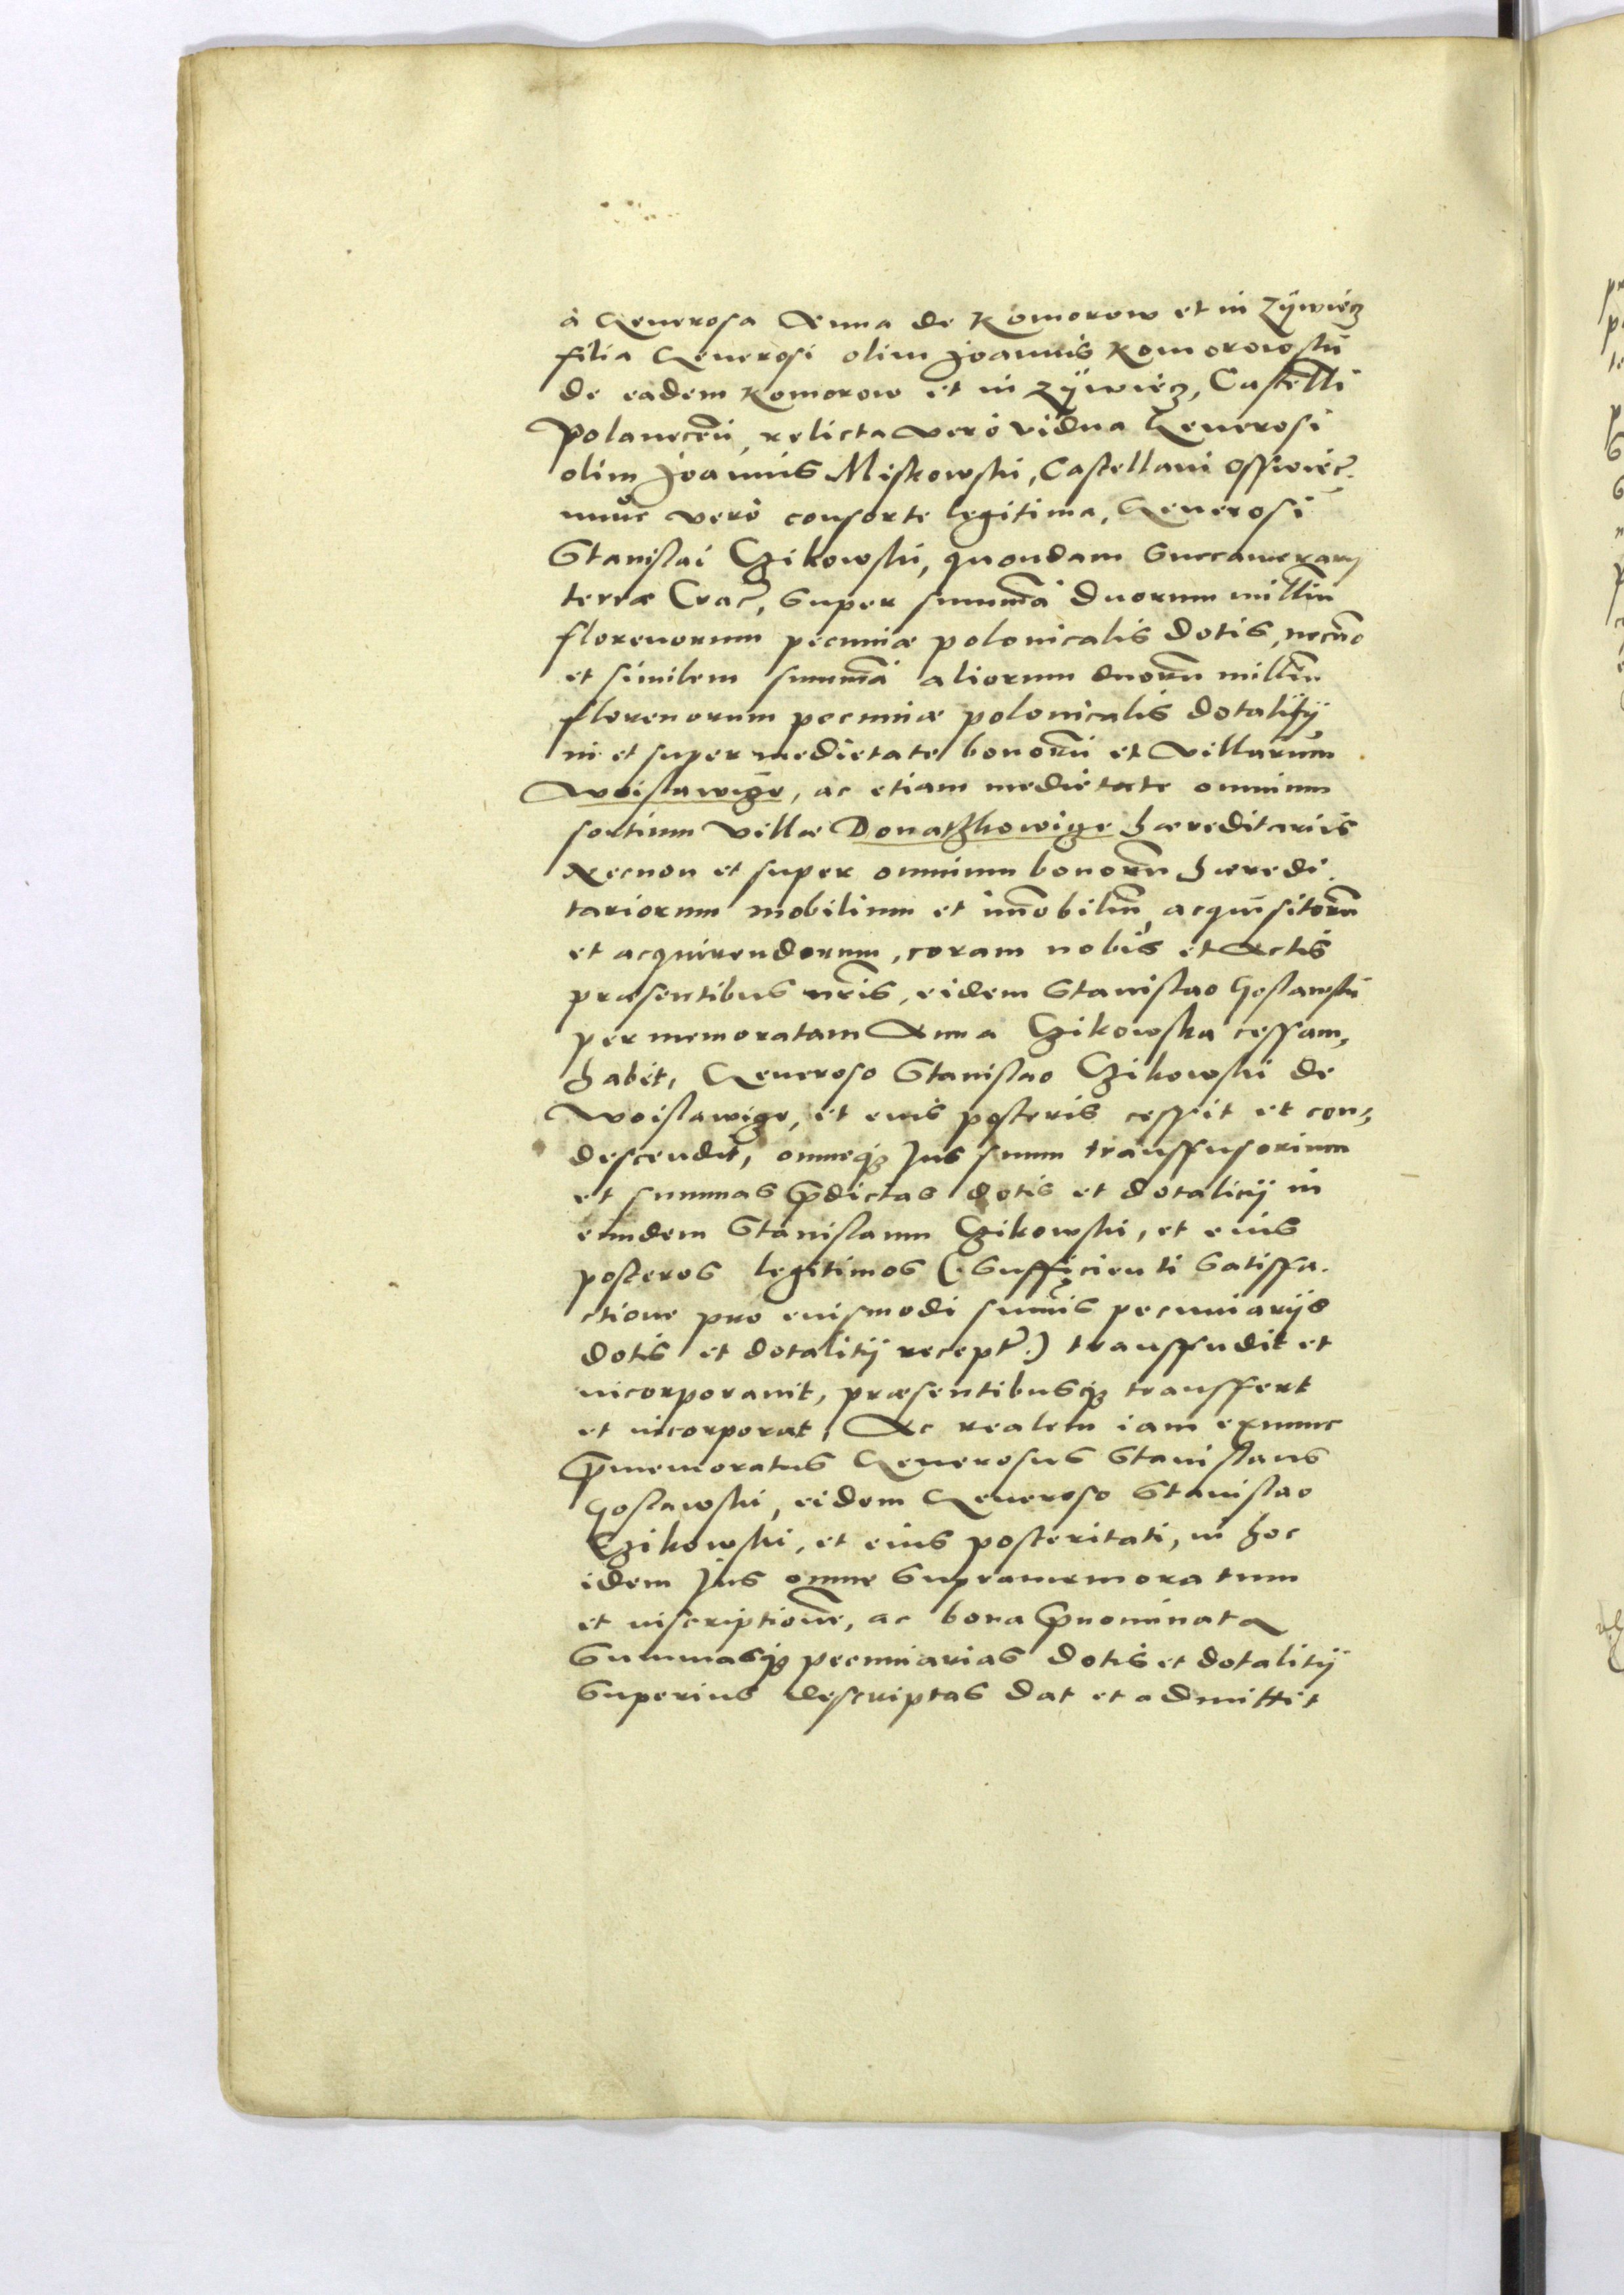 à Generosa Anna de Komorow et in Zÿwiecz
filia Generosi olim Joannis Komorowski
de eadem Komorow et in Zÿwiecz, Castelli
Polanecēn, relicta vero vidua Generosi
olim Joannis Miskowski, Castellani Osswiēc.
nunc verò consorte legitima, Generosi
Stanislai Czikowski, quondam Succamerarij
terræ Crac., super summā duorum milliū
florenorum pecuniæ polonicalis dotis, necno
et similem summā aliorum duorū milliū
florenorum pecuniæ polonicalis dotalitij
in et super medietate bonorū et villarum
Woislawicze, ac etiam medietate omnium
sortium villæ Donatzkowicze hæreditarijs
Necnon et super omnium bonorū hæredi.
tariorum mobilium et im̄obiliū, acquisitorū
et acquirendorum, coram nobis et Actis
præsentibus nr̄is, eidem Stanislao Goslawski
per memoratam Anna Czikowska cessam,
habet, Generoso Stanislao Czikowski de
Woislawicze, et eius posteris cessit et con,
descendit, omneq₃ Jus suum transfusorium
et summas p̄dictas dotis et dotalicij in
eundem Stanislaum Czikowski, et eius
posteros legitimos (. Sufficienti Satisfa.
ctione pro eiusmodi sum̄is pecuniarijs
dotis et dotalitij recept.) transfudit et
incorporauit, præsentibusq₃ transffert
et incorporat, Ac realem iam exnunc
p̄memoratus Generosus Stanislaus
Goslawski, eidem Generoso Stanislao
Czikowski, et eius posteritati, in hoc
idem Jus omne Supramemoratum
et inscriptionē, ac bona p̄nominata
Summasq₃ pecuniarias dotis et dotalitij
Superius descriptas dat et admittit